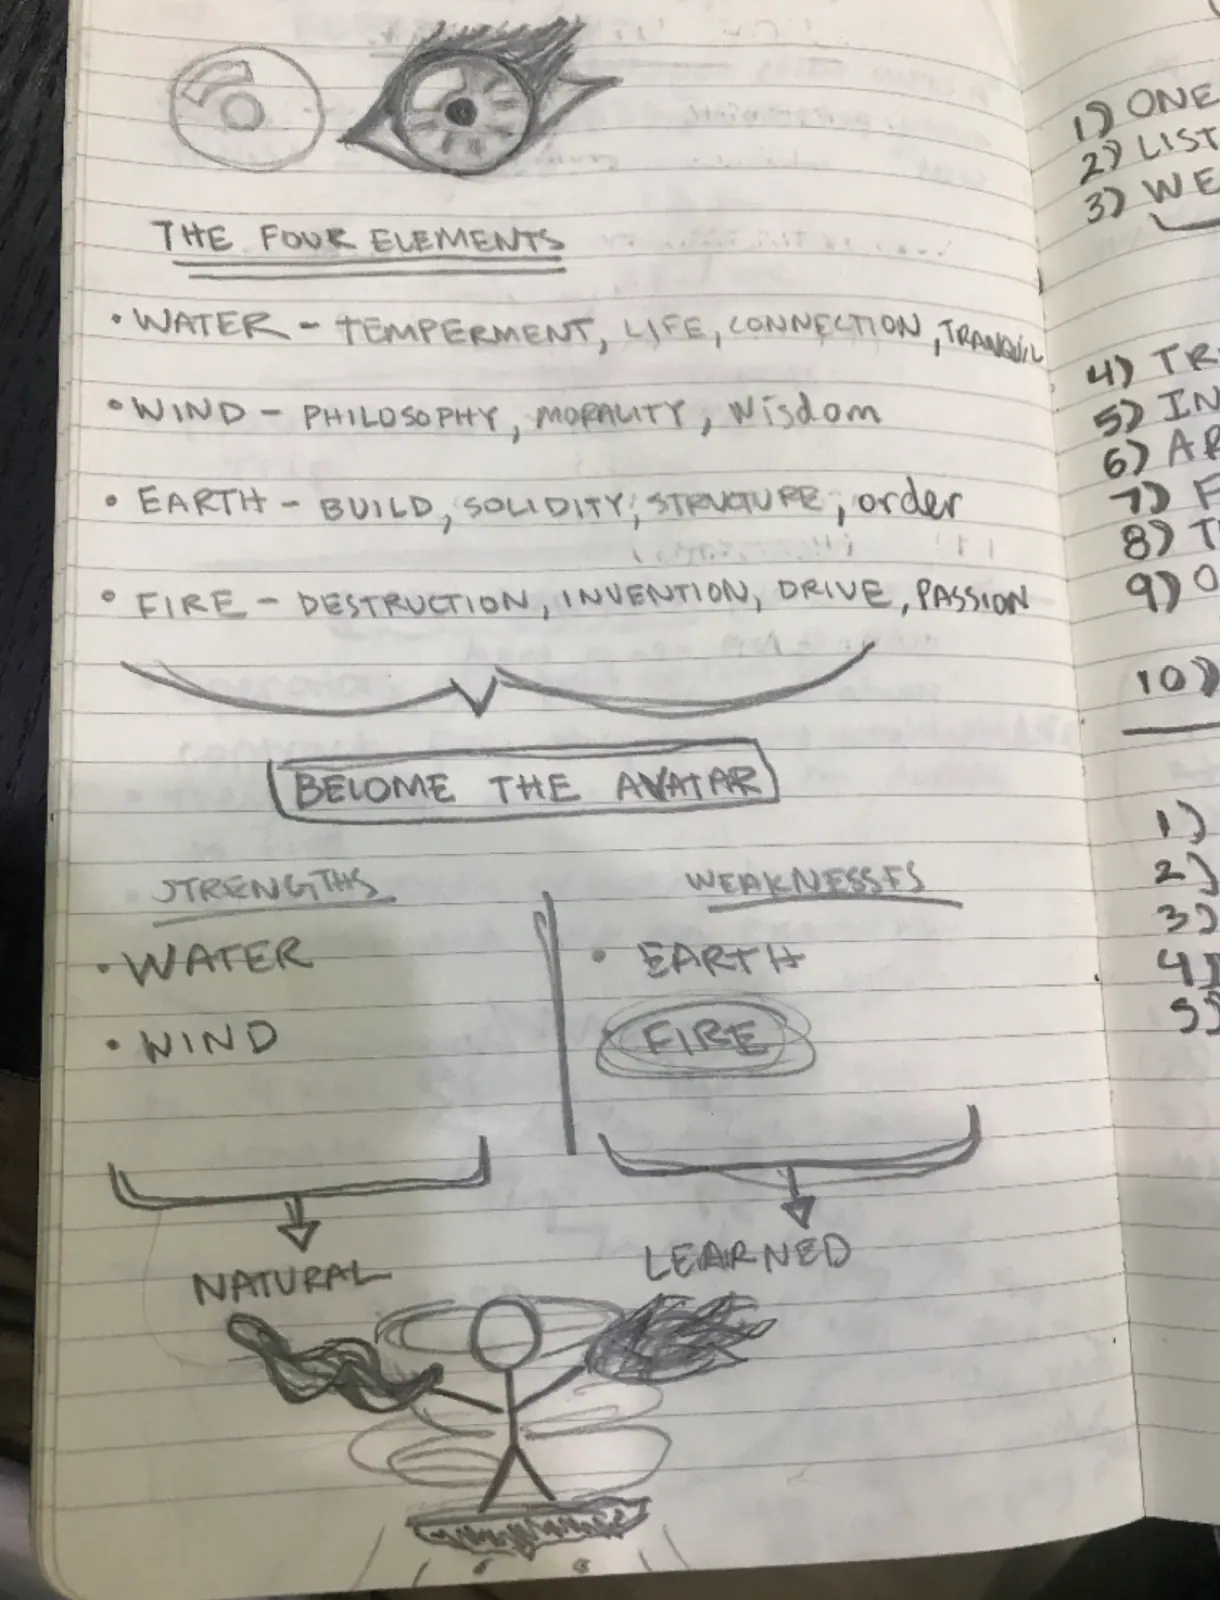 THE FOUR ELEMENTS
• WATER – TEMPERMENT, LIFE, CONNECTION, TRANQUIL
• WIND – PHILOSOPHY, MORALITY, Wisdom
• EARTH – BUILD, SOLIDITY, STRUCTURE, order
• FIRE – DESTRUCTION, INVENTION, DRIVE, PASSION
BECOME THE AVATAR
STRENGTHS
• WATER
• WIND
NATURAL
WEAKNESSES
• EARTH
FIRE
LEARNED
1) ONE
2) LIST
3) WE
4) TR
5) IN
6) AR
7) F
8) T
9) O
10)
1)
2)
3)
4)
5)